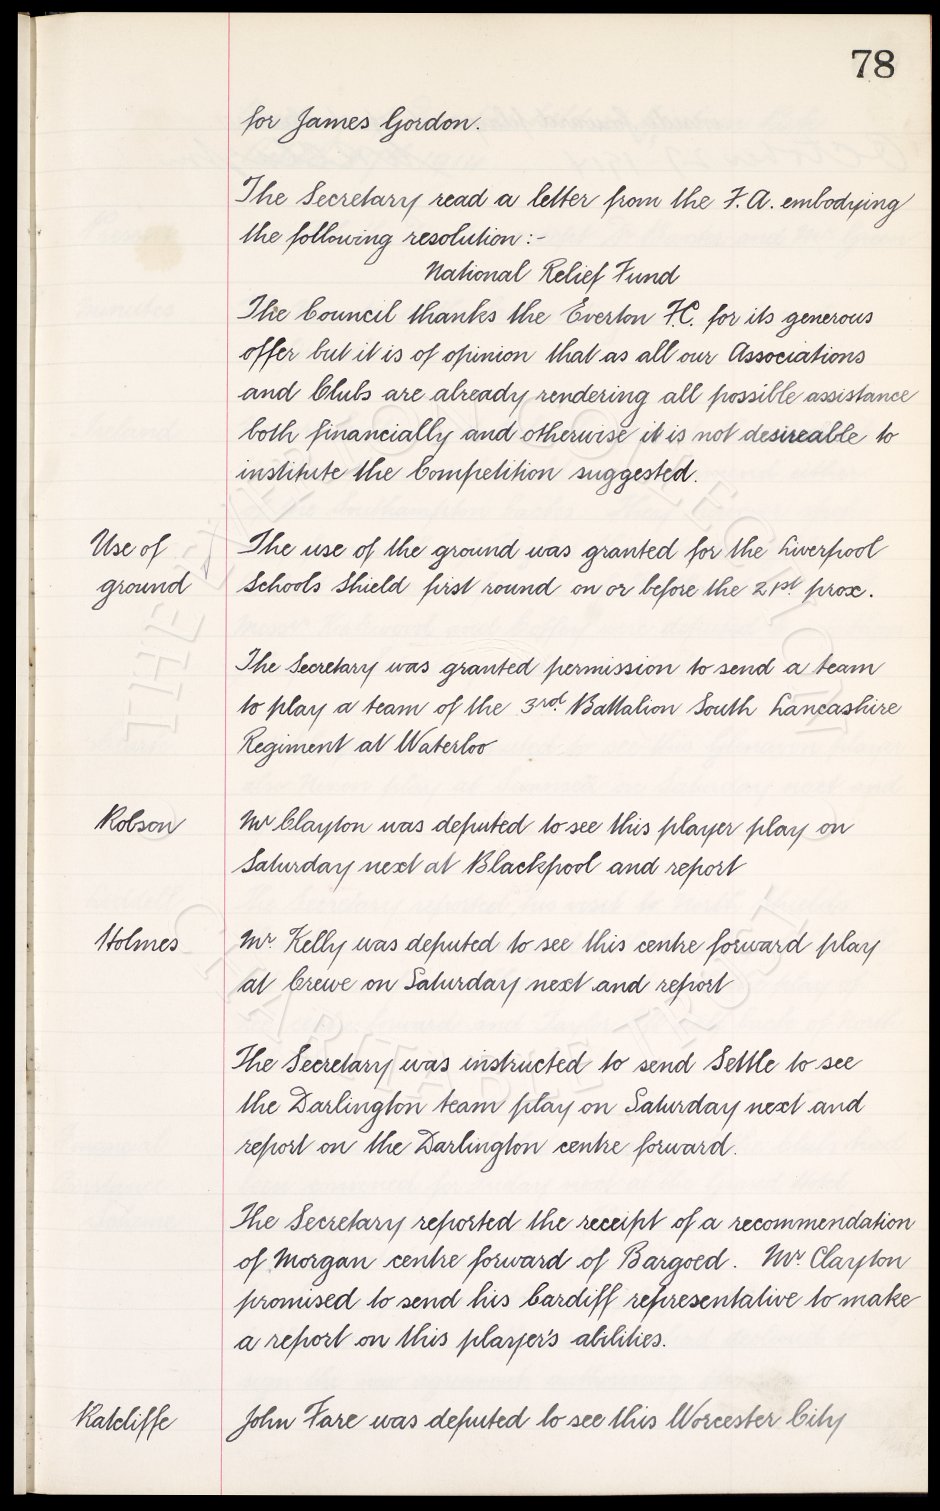 78
for James Gordon.
The Secretary read a letter from the F.A. embodying
the following resolution :-
National Relief Fund
The Council thanks the Everton F.C. for its generous
offer but it is of opinion that as all our Associations
and Clubs are already rendering all possible assistance
both financially and otherwise it is not desireable to
institute the Competition suggested.
Use of
ground
The use of the ground was granted for the Liverpool
Schools Shield first round on or before the 21st prox.
The Secretary was granted permission to send a team
to play a team of the 3rd. Battalion South Lancashire
Regiment at Waterloo
Robson
Mr Clayton was deputed to see this player play on
Saturday next at Blackpool and report
Holmes
Mr. Kelly was deputed to see this centre forward play
at Crewe on Saturday next and report
The Secretary was instructed to send Settle to see
the Darlington team play on Saturday next and
report on the Darlington centre forward.
The Secretary reported the receipt of a recommendation
of Morgan centre forward of Bargoed. Mr. Clayton
promised to send his Cardiff representative to make
a report on this player's abilities.
Ratcliffe
John Fare was deputed to see this Worcester City
THE EVERTON COLLECTION
CHARITABLE TRUST